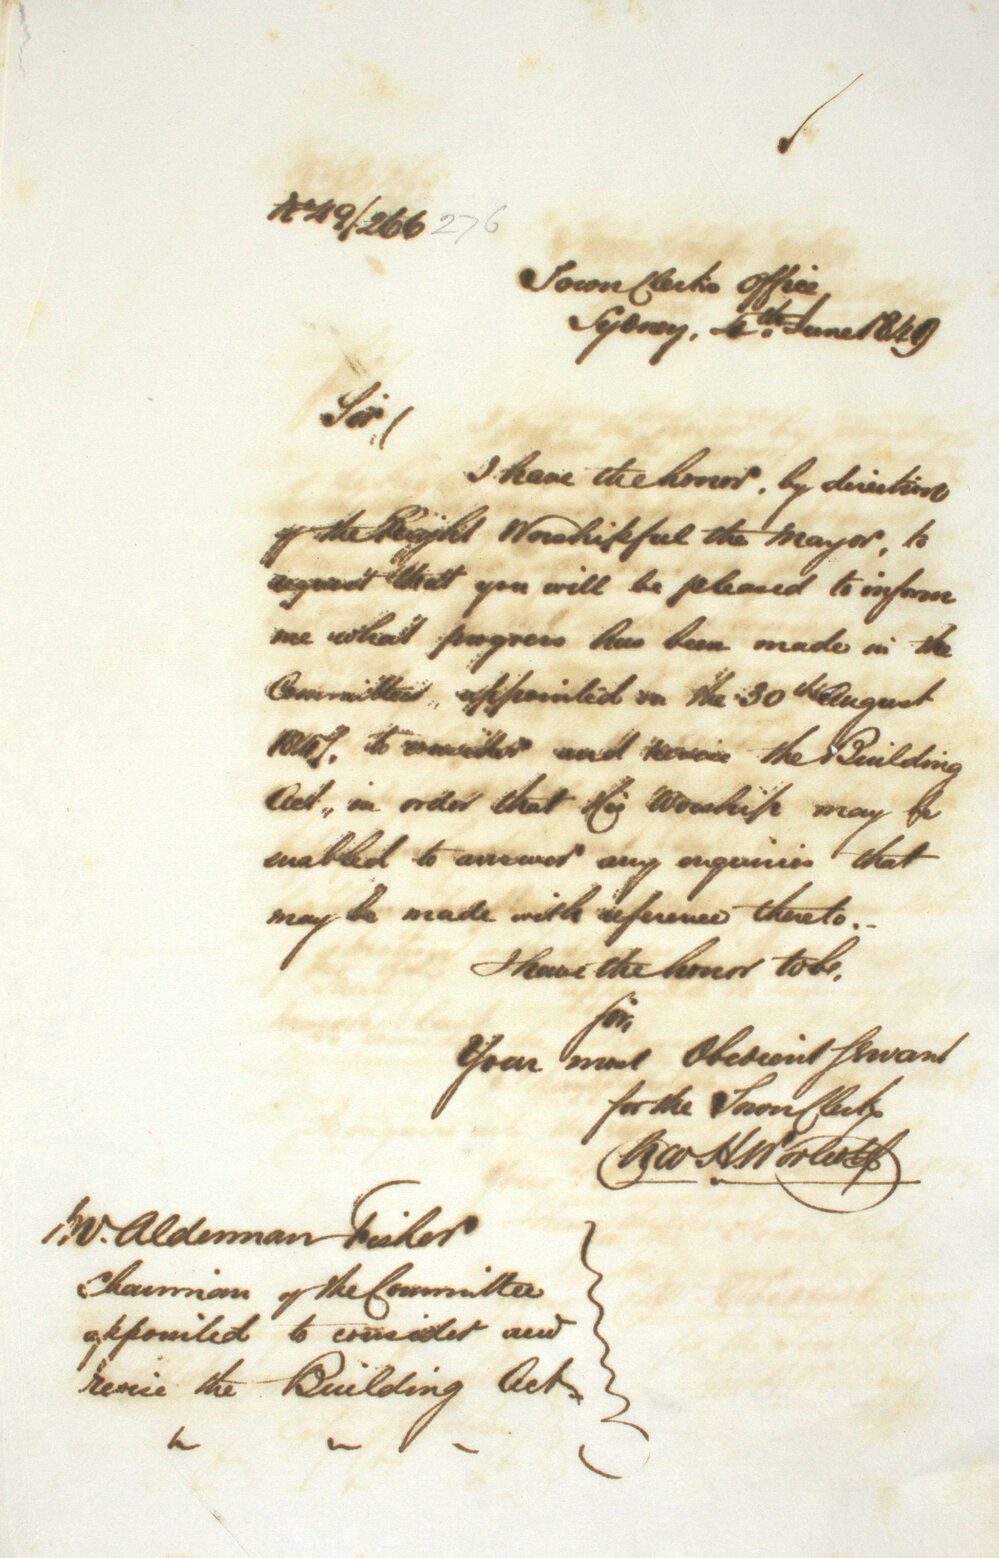 No 49/266 276
Town Clerk's Office
Sydney, 4th June 1849
Sir,
I have the honor, by direction
of the Right Worshipful the Mayor, to
request that you will be pleased to inform
me what progress has been made in the
Committee, appointed on the 30th August
1847, to consider and revise the Building
Act, in order that His Worship may be
enabled to answer any enquiries that
may be made with reference thereto..
I have the honor to be,
Sir,
Your most Obedient Servant
for the Town Clerk
Mr. Alderman Fisher
Chairman of the Committee
appointed to consider and
revise the Building Act